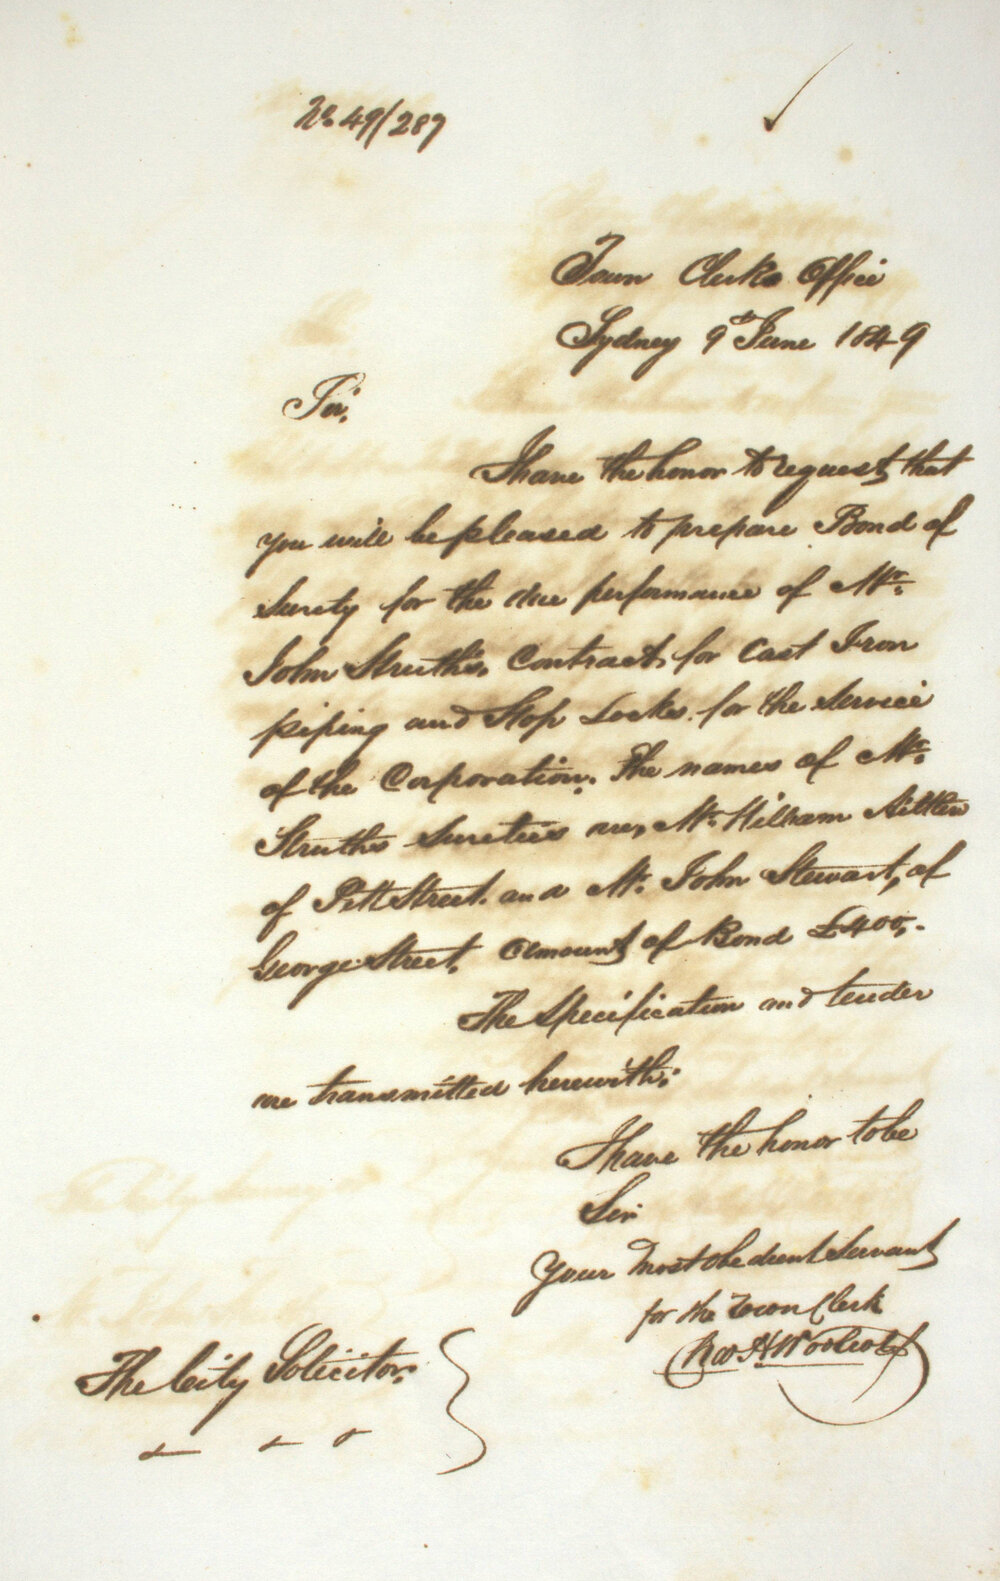 No. 49/287
Town Clerks Office
Sydney 9th June 1849
Sir,
I have the honor to request, that
you will be pleased to prepare Bond of
Surety for the due performance of Mr.
John Struth's, Contract, for Cast Iron
piping and Stop Cocks, for the Service
of the Corporation. The names of Mr.
Struths Sureties are, Mr. William Aitken
of Pitt Street, and Mr. John Stewart, of
George Street, Amount of Bond £400,.
The Specification and tender
are transmitted herewith.
I have the honor to be
Sir
Your Most obedient Servant
for the Town Clerk
The City Solicitor,